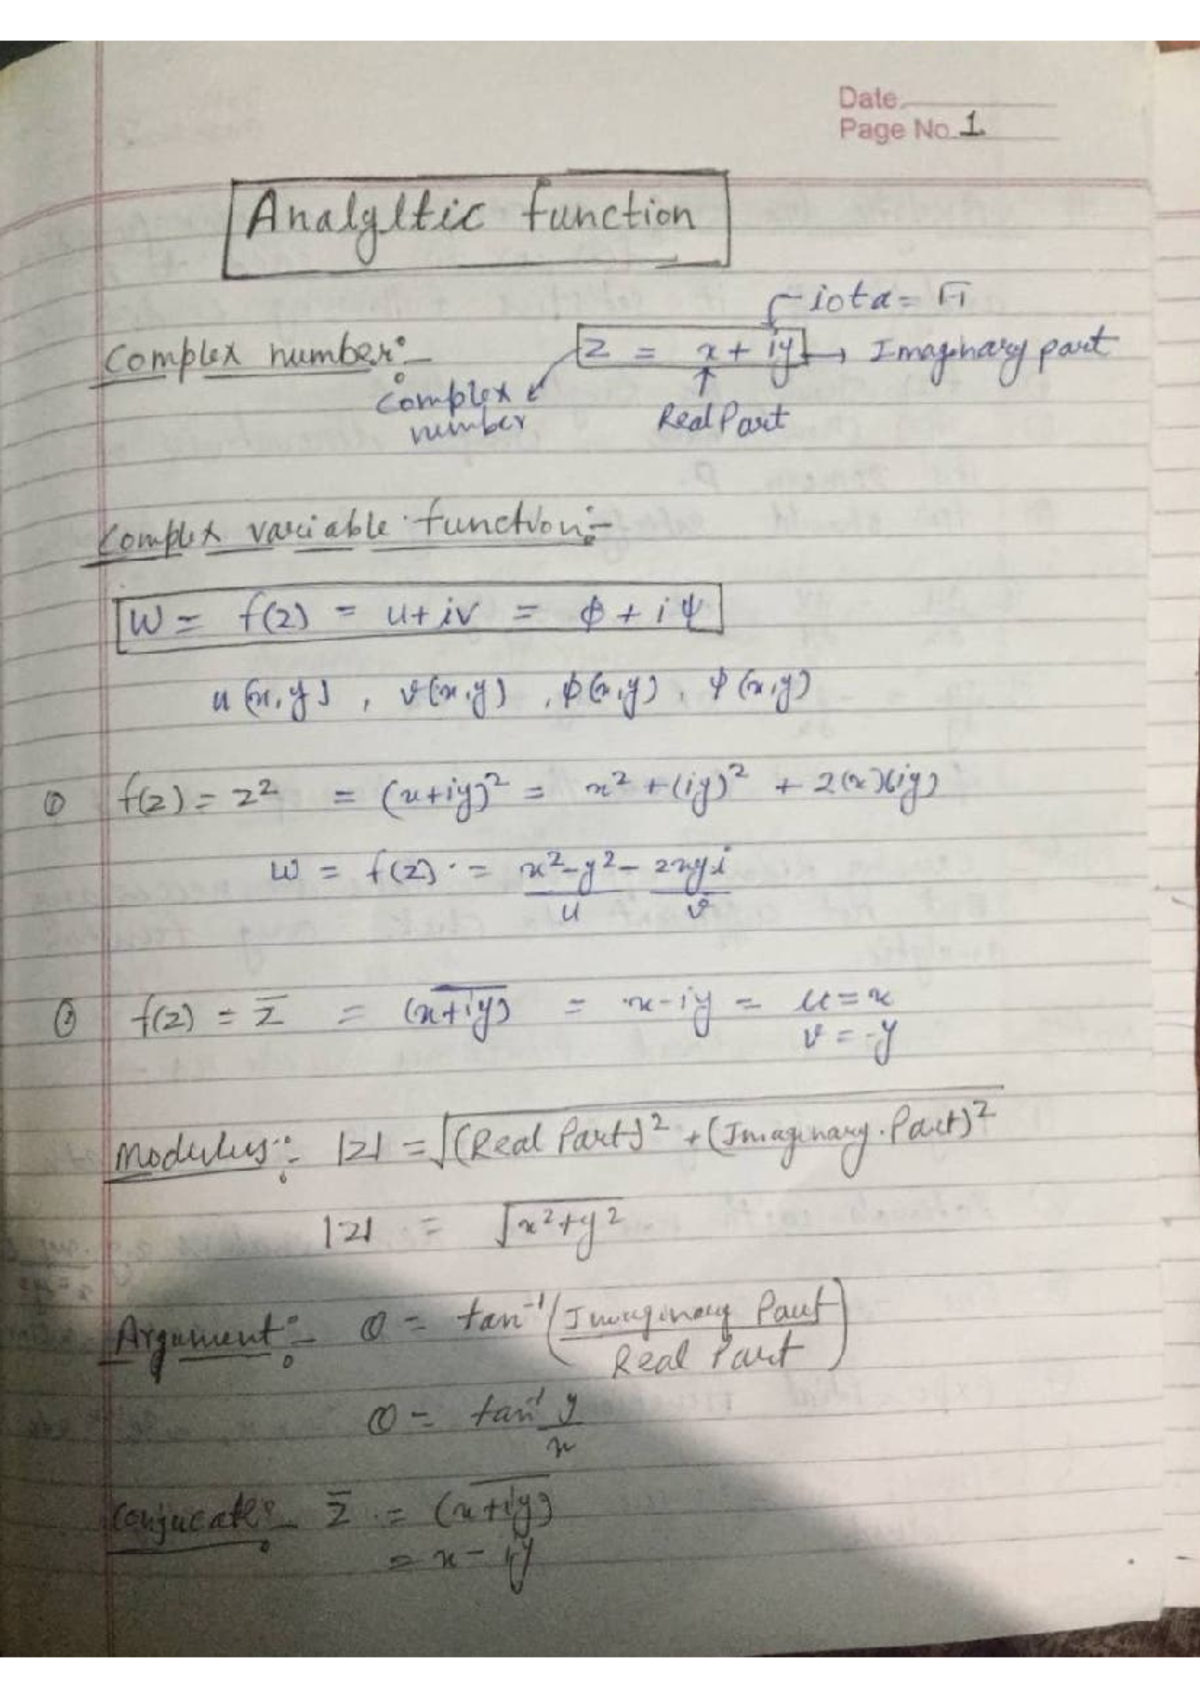 Date
Page No. 1
Analyltic function
iota = √-1
Complex number:- z = x + iy → Imaginary part
Complex number
Real Part
Complex variable function:-
W = f(z) = u+iv = ϕ + iψ
u(x,y), v(x,y), ϕ(x,y), ψ(x,y)
① f(z) = z² = (x+iy)² = x² + (iy)² + 2(x)(iy)
w = f(z) = x²-y² - 2xyi
u v
② f(z) = z̅ = (x+iy)‾ = x-iy = u=x
v = -y
Modulus:- |z| = √(Real Part)² + (Imaginary Part)²
|z| = √x²+y²
Argument:- θ = tan⁻¹(Imaginary Part / Real Part)
θ = tan⁻¹ y/x
Conjucate:- z̅ = (x+iy)‾
= x - iy